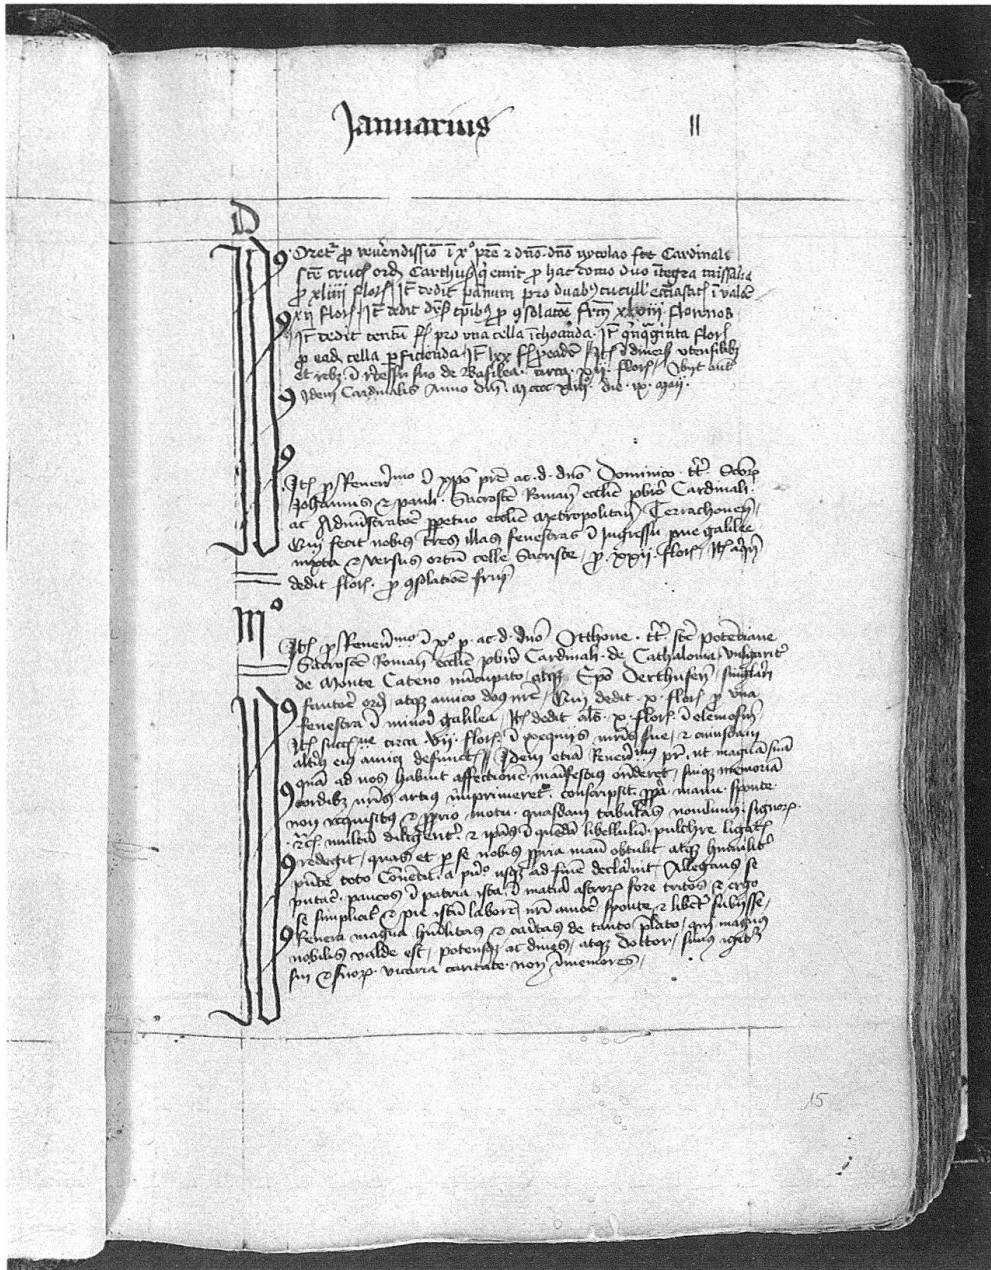 Januarius II
D
Oretr p reverendissio i xo pre et dno dno nycolao sce Cardinale
sce crucis ord Carthus q emit p hac domo duo integra missalia
p xliiii flor It dedit pannum pro duabus cucull ecclasticis i valore
xii flor It dedit dvs tpibus p gsolacoe frm xlviii florenos
It dedit centu fl pro una cella ichoanda It qnqginta flor
p ead cella pficienda It lxx fl p eade It i diversis utensilibz
et rebz i recessu suo de Basilea circa xii flor Obijt aut
idem Cardinalis Anno dni die ix maij
It p Reverenmo i xpo pre ac d dno Dominico tt Scor
Johannis et pauli Sacroste Roman ecclie pbro Cardinali
ac Administratore ppetuo ecclie Metropolitan Terrachonen
Qui fecit nobis tres illas fenestras i Ingressu pve galilee
iuxta et versus ortu celle Sacriste p xxii flor It
dedit flor p gsolatioe frm
Mo
It p Reverenmo i xo p ac d dno Otthone tt sce Potenciane
Sacroste Roman ecclie pbro Cardinali de Cathalonia vulgarit
de Monte Cateno nucupato Epo Derthusen singlari
fautore ord atqz amico dog nre Qui dedit x flor p una
fenestra i minori galilea It dedit als x flor i elemosin
It succ circa vii flor i exequijs mris sue et cuiusdam
alterius eius amici defuncti Idem etia Revermus pr ut magna sua
qua ad nos habuit affectione manifestius onderet suiqz memoria
cordibz nris artius imprimeret conscripsit ppa manu sponte
non requisitus et pprio motu quasdam tabulas noviluniu signor
etc multu diligent et ipas i quedam libellulu pulchre ligat
redegit quas et p se nobis ppria manu obtulit atqz humilit
pnte toto Conventu a pno usqz ad fine declaravit Allegans se
putare paucos i patria ista i materia astror fore tritos et ergo
se simplicit et pie istu labore nri amore sponte et libent subijsse
Revera magna humilitas et caritas de tanto plato qui magnus
nobilis valde est potensqz ac dives atqz doctor simus igit
sui et suor vicaria caritate non imemores
15